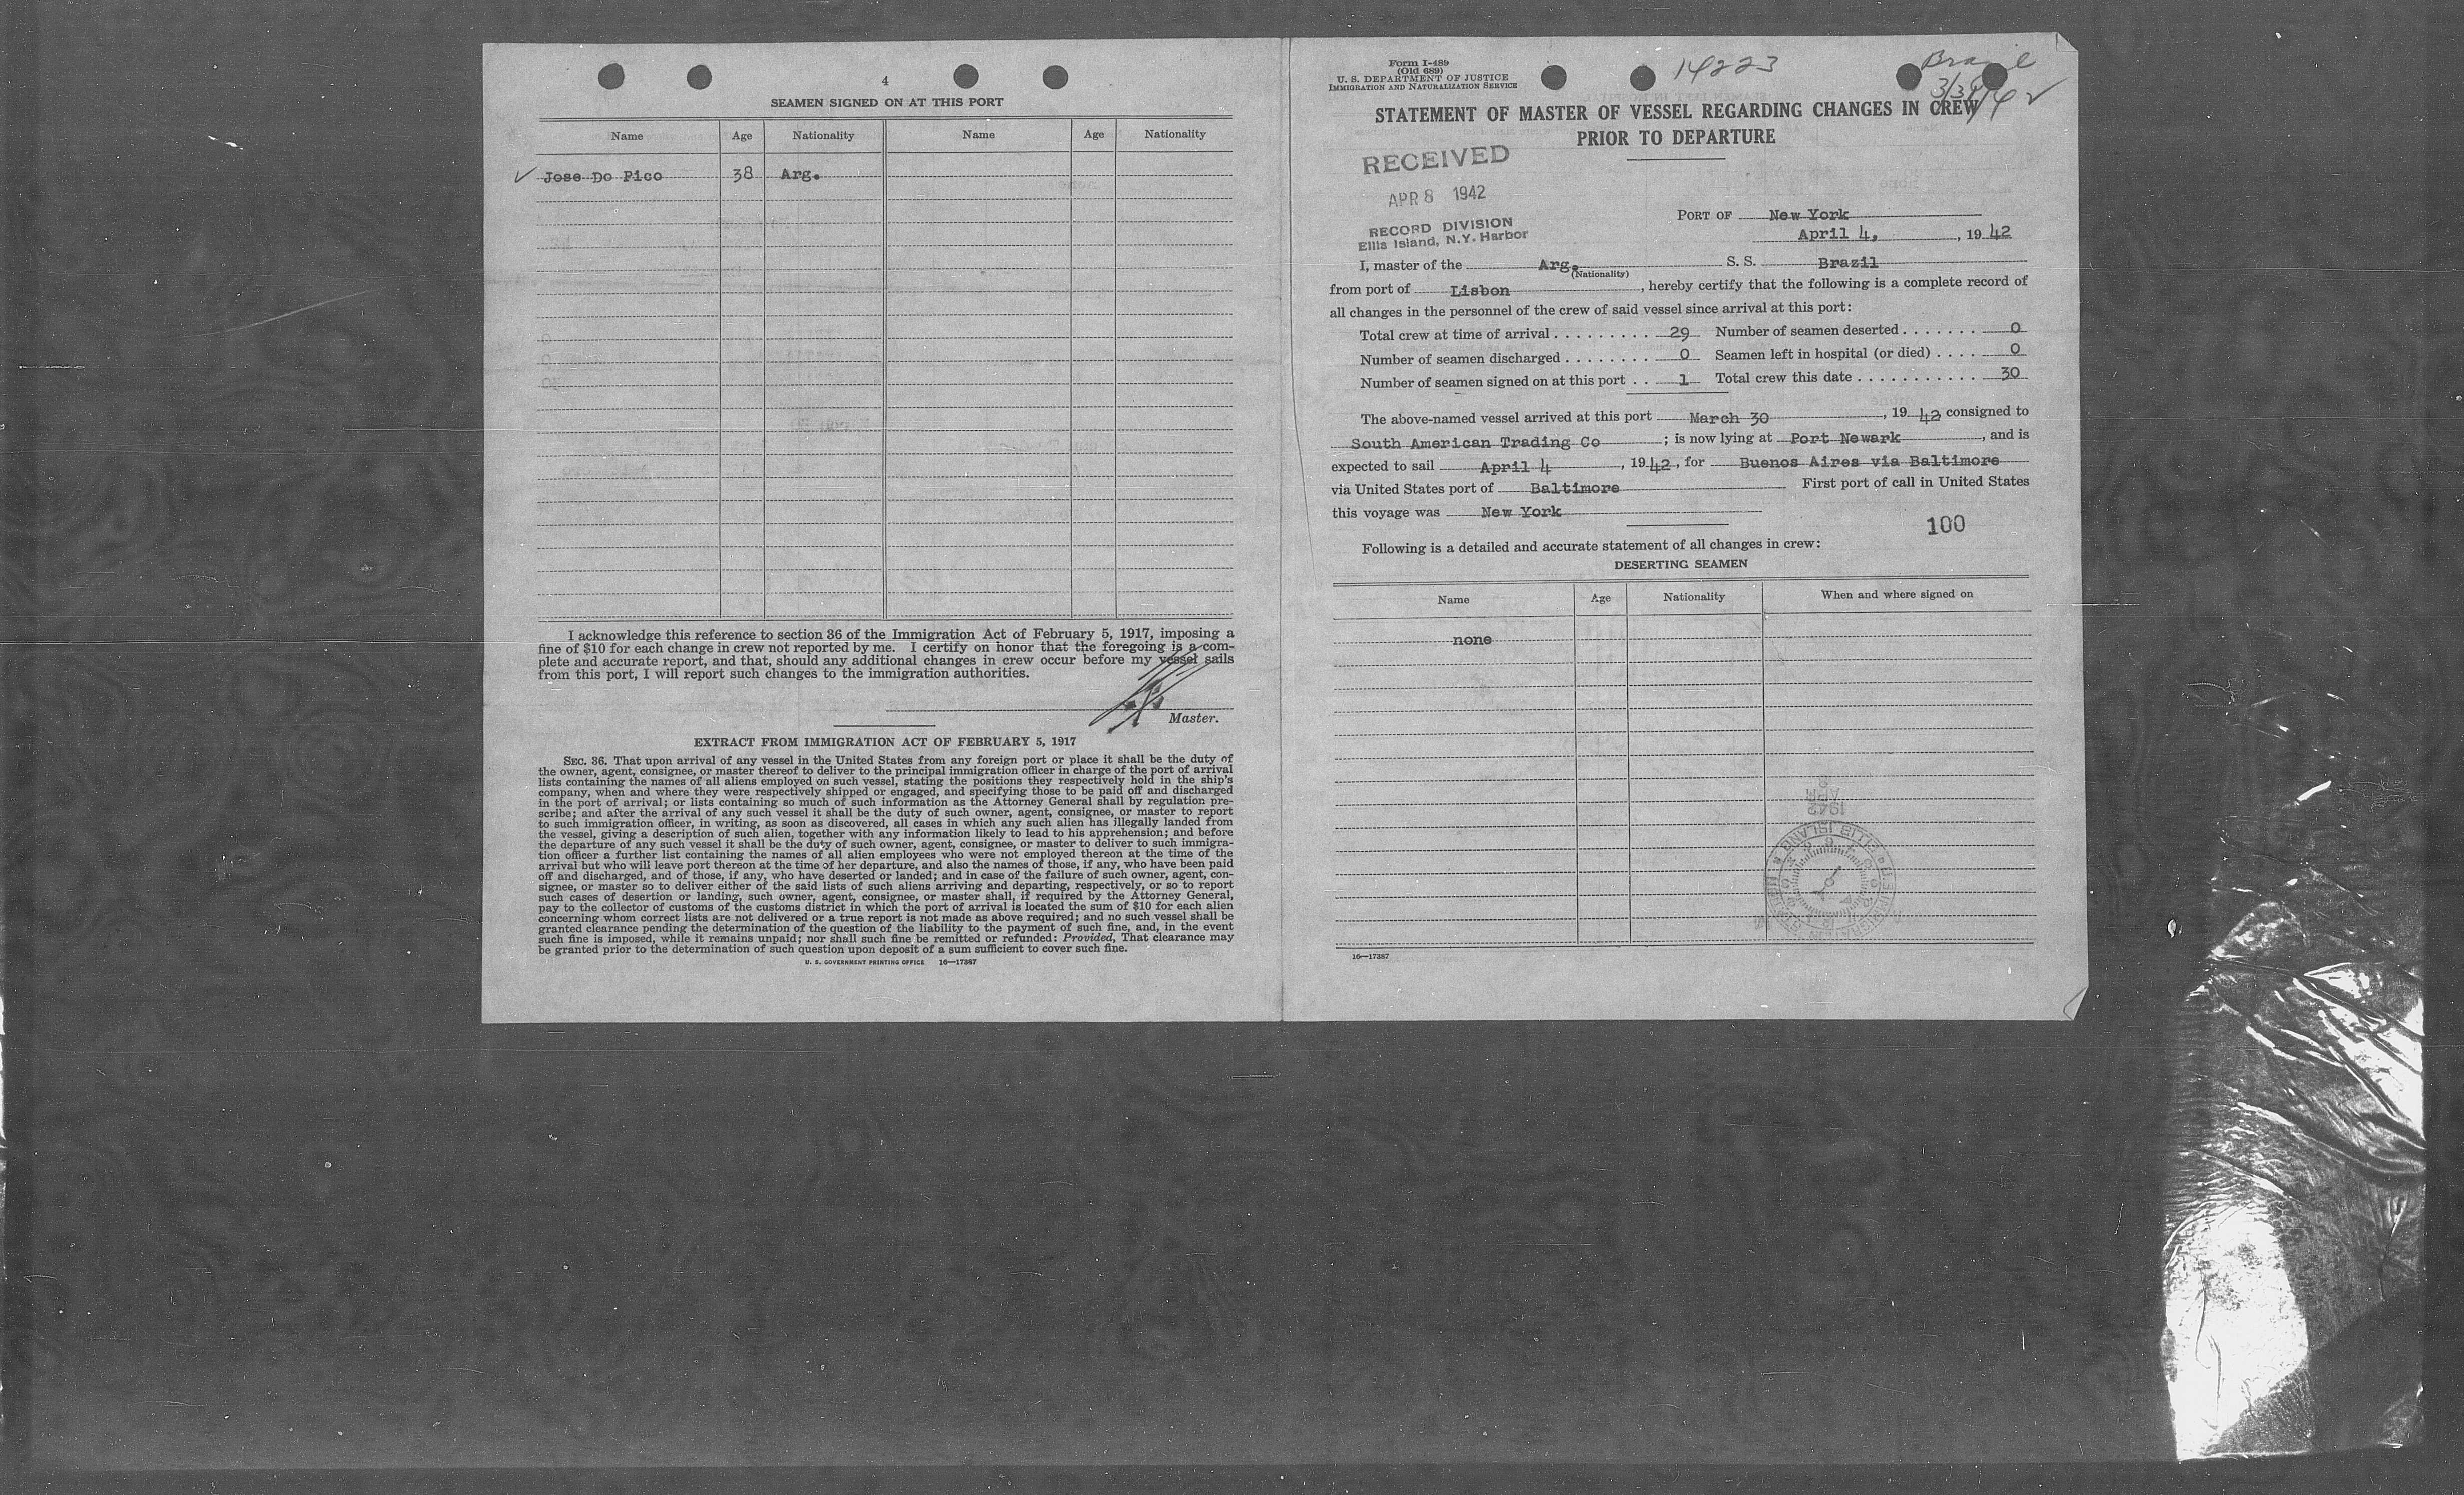 4
SEAMEN SIGNED ON AT THIS PORT
Name Age Nationality Name Age Nationality
✓ Jose Do Pico 38 Arg.
I acknowledge this reference to section 36 of the Immigration Act of February 5, 1917, imposing a
fine of $10 for each change in crew not reported by me. I certify on honor that the foregoing is a com-
plete and accurate report, and that, should any additional changes in crew occur before my vessel sails
from this port, I will report such changes to the immigration authorities.
Master.
EXTRACT FROM IMMIGRATION ACT OF FEBRUARY 5, 1917
SEC. 36. That upon arrival of any vessel in the United States from any foreign port or place it shall be the duty of
the owner, agent, consignee, or master thereof to deliver to the principal immigration officer in charge of the port of arrival
lists containing the names of all aliens employed on such vessel, stating the positions they respectively hold in the ship's
company, when and where they were respectively shipped or engaged, and specifying those to be paid off and discharged
in the port of arrival; or lists containing so much of such information as the Attorney General shall by regulation pre-
scribe; and after the arrival of any such vessel it shall be the duty of such owner, agent, consignee, or master to report
to such immigration officer, in writing, as soon as discovered, all cases in which any such alien has illegally landed from
the vessel, giving a description of such alien, together with any information likely to lead to his apprehension; and before
the departure of any such vessel it shall be the duty of such owner, agent, consignee, or master to deliver to such immigra-
tion officer a further list containing the names of all alien employees who were not employed thereon at the time of the
arrival but who will leave port thereon at the time of her departure, and also the names of those, if any, who have been paid
off and discharged, and of those, if any, who have deserted or landed; and in case of the failure of such owner, agent, con-
signee, or master so to deliver either of the said lists of such aliens arriving and departing, respectively, or so to report
such cases of desertion or landing, such owner, agent, consignee, or master shall, if required by the Attorney General,
pay to the collector of customs of the customs district in which the port of arrival is located the sum of $10 for each alien
concerning whom correct lists are not delivered or a true report is not made as above required; and no such vessel shall be
granted clearance pending the determination of the question of the liability to the payment of such fine, and, in the event
such fine is imposed, while it remains unpaid; nor shall such fine be remitted or refunded: Provided, That clearance may
be granted prior to the determination of such question upon deposit of a sum sufficient to cover such fine.
U. S. GOVERNMENT PRINTING OFFICE 16—17387
Form I-489
(Old 689)
U. S. DEPARTMENT OF JUSTICE
IMMIGRATION AND NATURALIZATION SERVICE
14223
Brazil
3/30/42 ✓
STATEMENT OF MASTER OF VESSEL REGARDING CHANGES IN CREW
PRIOR TO DEPARTURE
RECEIVED
APR 8 1942
RECORD DIVISION
Ellis Island, N.Y. Harbor
PORT OF New York
April 4, , 19 42
I, master of the Arg. S. S. Brazil
(Nationality)
from port of Lisbon , hereby certify that the following is a complete record of
all changes in the personnel of the crew of said vessel since arrival at this port:
Total crew at time of arrival . . . . . . . . . 29 Number of seamen deserted . . . . . . . 0
Number of seamen discharged . . . . . . . . 0 Seamen left in hospital (or died) . . . . 0
Number of seamen signed on at this port . . 1 Total crew this date . . . . . . . . . . . . 30
The above-named vessel arrived at this port March 30 , 19 42 consigned to
South American Trading Co ; is now lying at Port Newark , and is
expected to sail April 4 , 19 42, for Buenos Aires via Baltimore
via United States port of Baltimore First port of call in United States
this voyage was New York
100
Following is a detailed and accurate statement of all changes in crew:
DESERTING SEAMEN
Name Age Nationality When and where signed on
none
1942
APR
8
16—17387